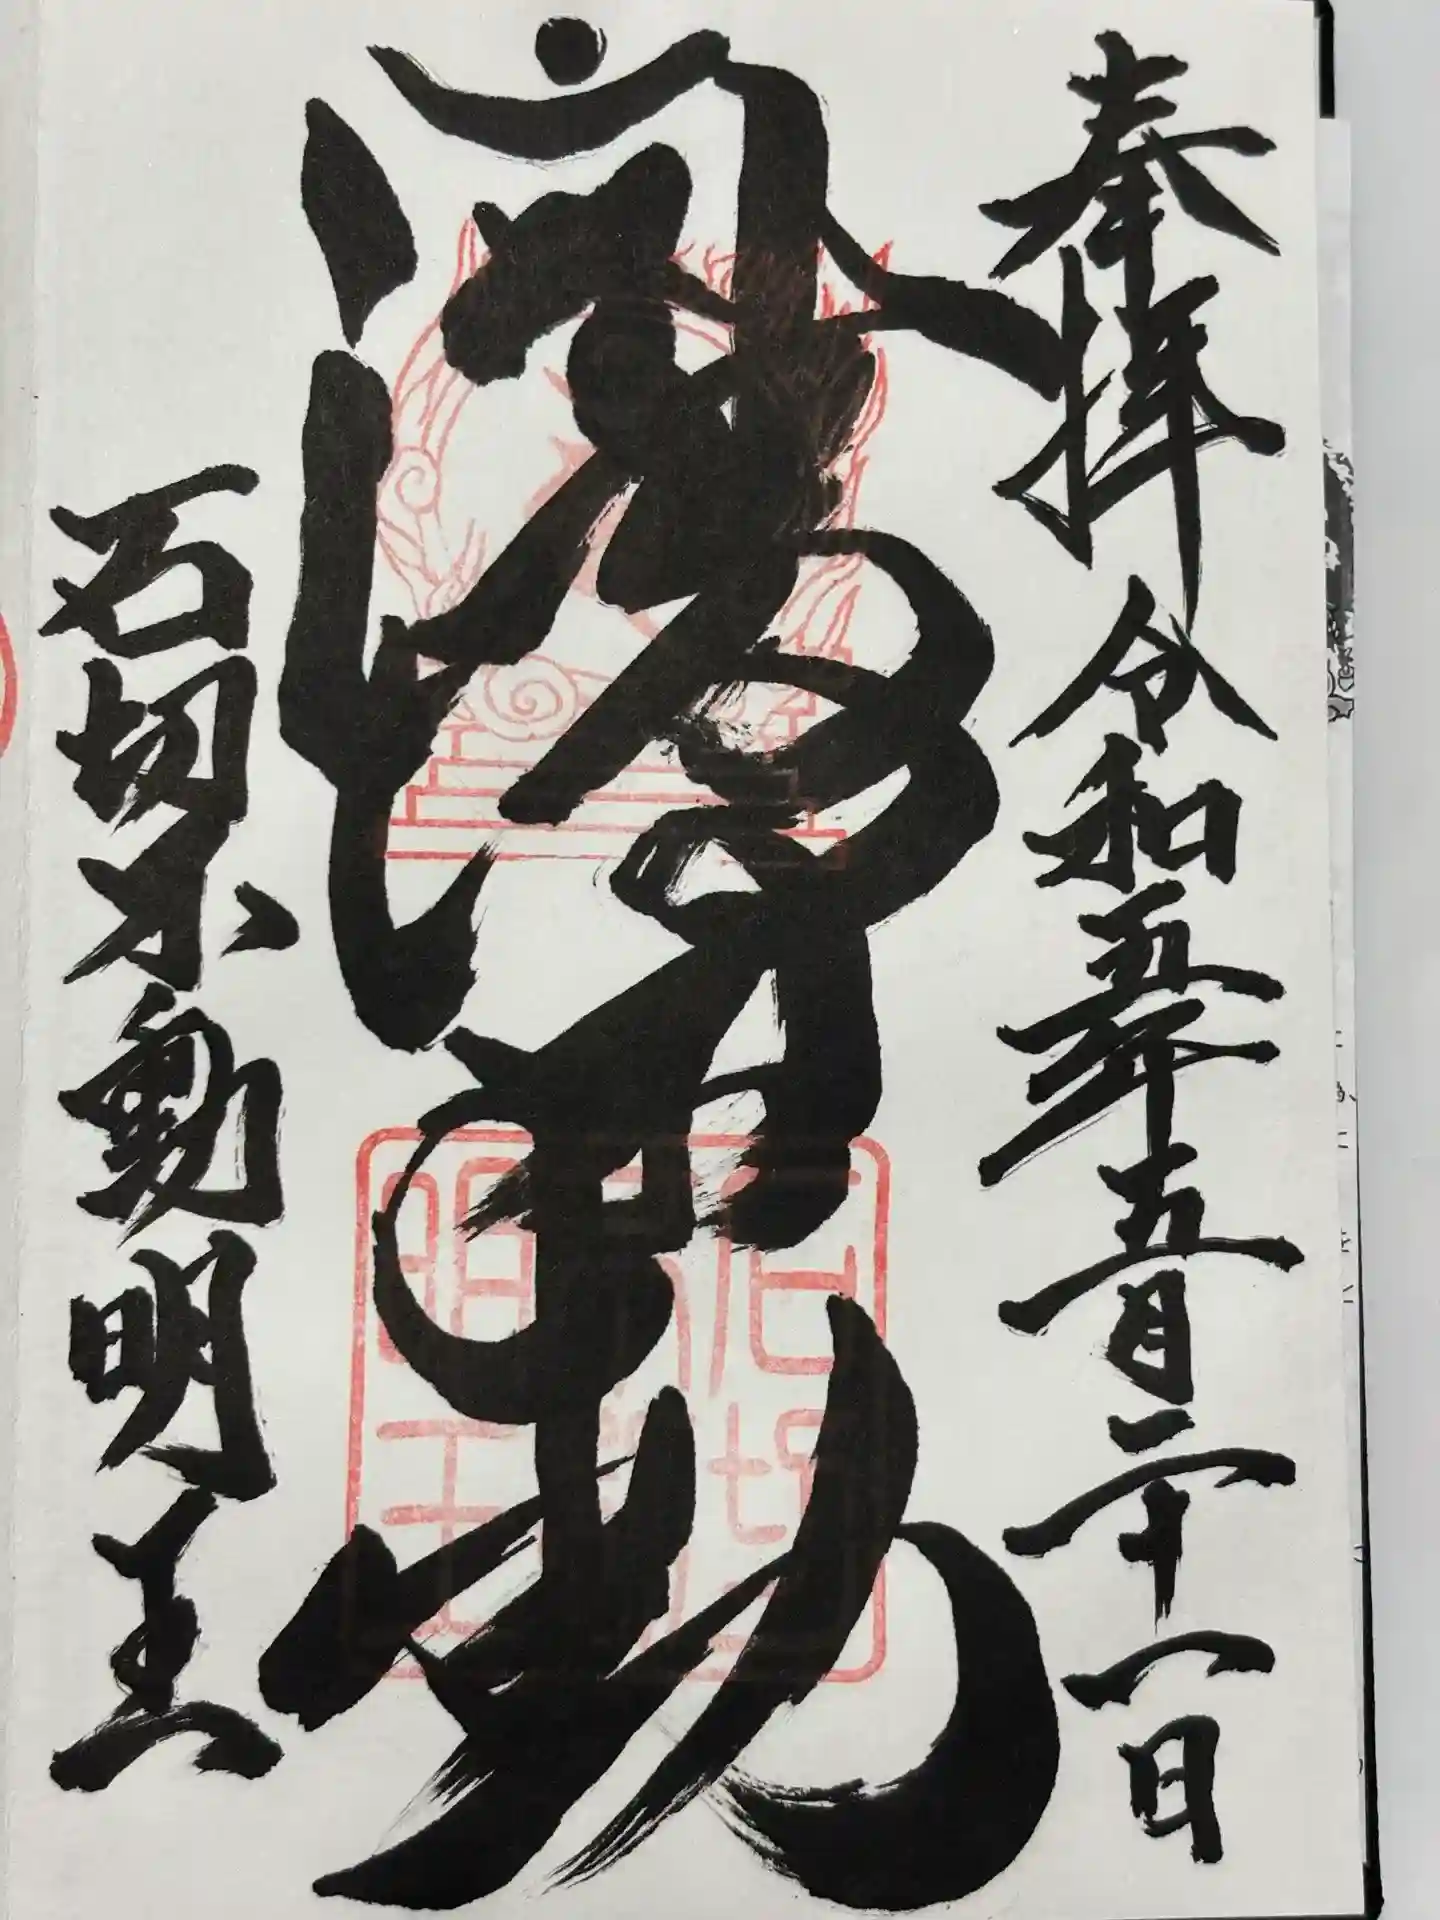 奉拝 令和五年五月二十一日
動
石切不動明王
石切
明王